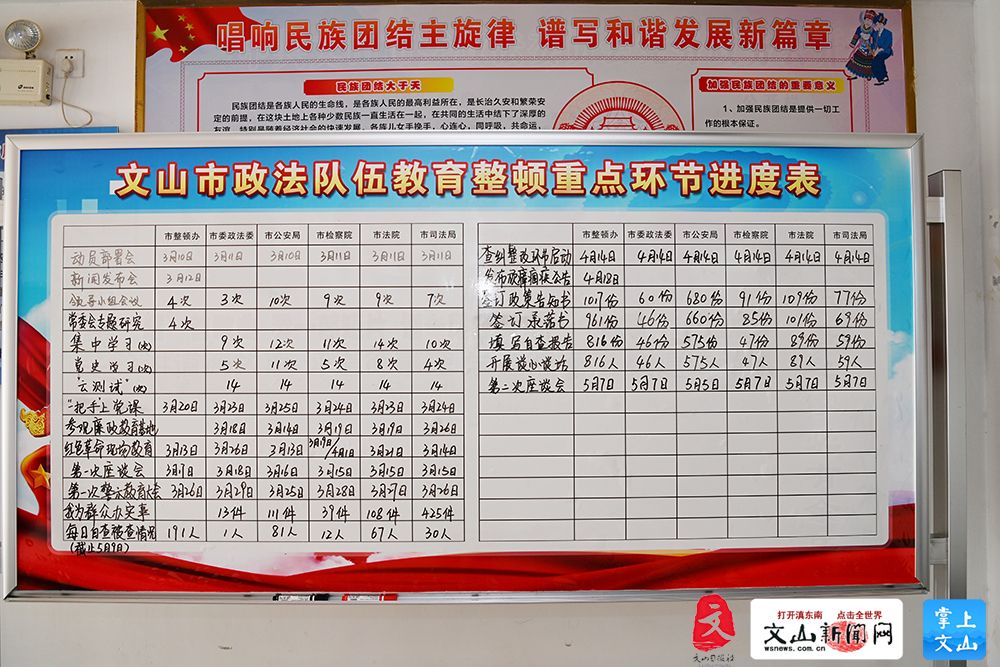 唱响民族团结主旋律 谱写和谐发展新篇章
民族团结大于天
民族团结是各族人民的生命线，是各族人民的最高利益所在，是长治久安和繁荣安
定的前提，在这块土地上各种少数民族一直生活在一起，在共同的生活中结下了深厚的
友谊，特别是随着经济社会的快速发展，各族儿女手挽手，心连心，同呼吸，共命运，
加强民族团结的重要意义
1、加强民族团结是提供一切工
作的根本保证。
文山市政法队伍教育整顿重点环节进度表
市整顿办 市委政法委 市公安局 市检察院 市法院 市司法局
动员部署会 3月10日 3月11日 3月10日 3月11日 3月11日 3月11日
新闻发布会 3月12日
领导小组会议 4次 3次 10次 9次 9次 7次
常委会专题研究 4次
集中学习(次) 9次 12次 11次 14次 10次
党史学习(次) 5次 11次 5次 8次 4次
"云测试"(次) 14 14 14 14 14
"一把手"上党课 3月20日 3月23日 3月25日 3月24日 3月23日 3月24日
参观廉政教育基地 3月18日 3月14日 3月19日 3月19日 3月26日
红色革命现场教育 3月13日 3月26日 3月13日 3月19日/4月1日 3月21日 3月14日
第一次座谈会 3月17日 3月18日 3月16日 3月15日 3月15日 3月15日
第一次警示教育大会 3月26日 3月29日 3月25日 3月28日 3月27日 3月26日
我为群众办实事 13件 111件 39件 108件 425件
每日自查被查情况 191人 1人 81人 12人 67人 30人
(截止5月9日)
市整顿办 市委政法委 市公安局 市检察院 市法院 市司法局
查纠整改环节启动 4月14日 4月14日 4月14日 4月14日 4月14日 4月14日
发布政廉公告 4月18日
签订政策告知书 1017份 60份 680份 91份 109份 77份
签订承诺书 961份 46份 660份 85份 101份 69份
填写自查报告 816份 46份 575份 47份 89份 59份
开展谈心谈话 816人 46人 575人 47人 89人 59人
第二次座谈会 5月7日 5月7日 5月5日 5月7日 5月7日 5月7日
文
文山日报社
打开滇东南 点击全世界
文山新闻网
wsnews.com.cn
掌上
文山